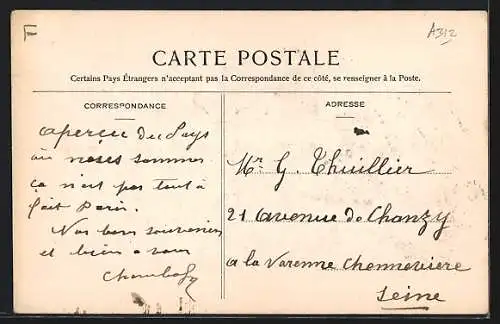 F
A312
CARTE POSTALE
Certains Pays Étrangers n'acceptant pas la Correspondance de ce côté, se renseigner à la Poste.
CORRESPONDANCE
aperçu du Pays
où nous sommes
ça n'est pas tout à
fait Paris.
Nos bons souvenirs
et bien à vous
ADRESSE
Mr. G. Thuillier
21 avenue de Chanzy
a la Varenne Chennevière
Seine